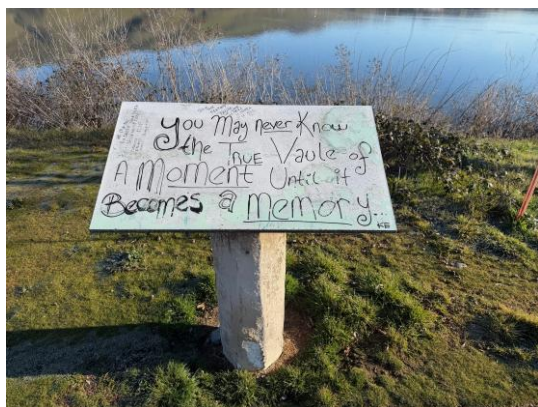 You May never Know
the True Vaule of
A Moment Until it
Becomes a memory...
KB